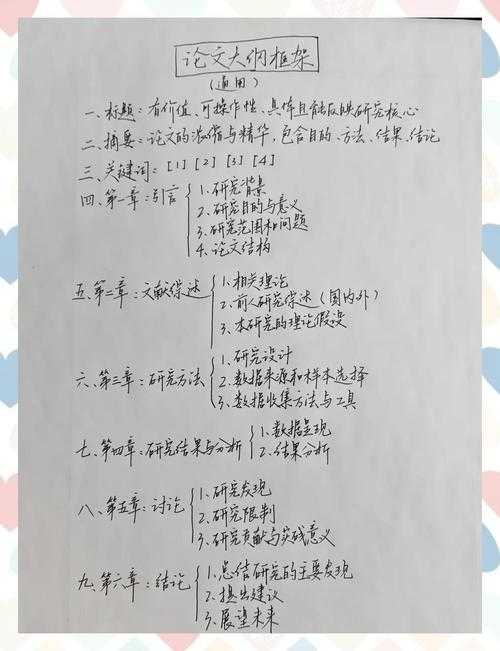 论文大纲框架
(通用)
一、标题：有价值、可操作性、具体且能反映研究核心
二、摘要：论文的浓缩与精华，包含目的、方法、结果、结论
三、关键词：[1] [2] [3] [4]
四、第一章：引言
1.研究背景
2.研究目的与意义
3.研究范围和问题
4.论文结构
五、第二章：文献综述
1.相关理论
2.前人研究综述（国内外）
3.本研究的理论假设
六、第三章：研究方法
1.研究设计
2.数据来源和样本选择
3.数据收集方法与工具
七、第四章：研究结果与分析
1.数据呈现
2.结果分析
八、第五章：讨论
1.研究发现
2.研究限制
3.研究贡献与实践意义
九、第六章：结论
1.总结研究的主要发现
2.提出建议
3.展望未来